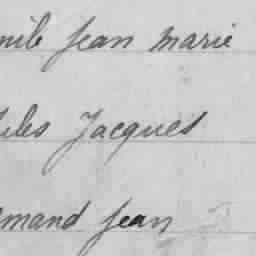 mile Jean Marie
ules Jacques
rmand Jean